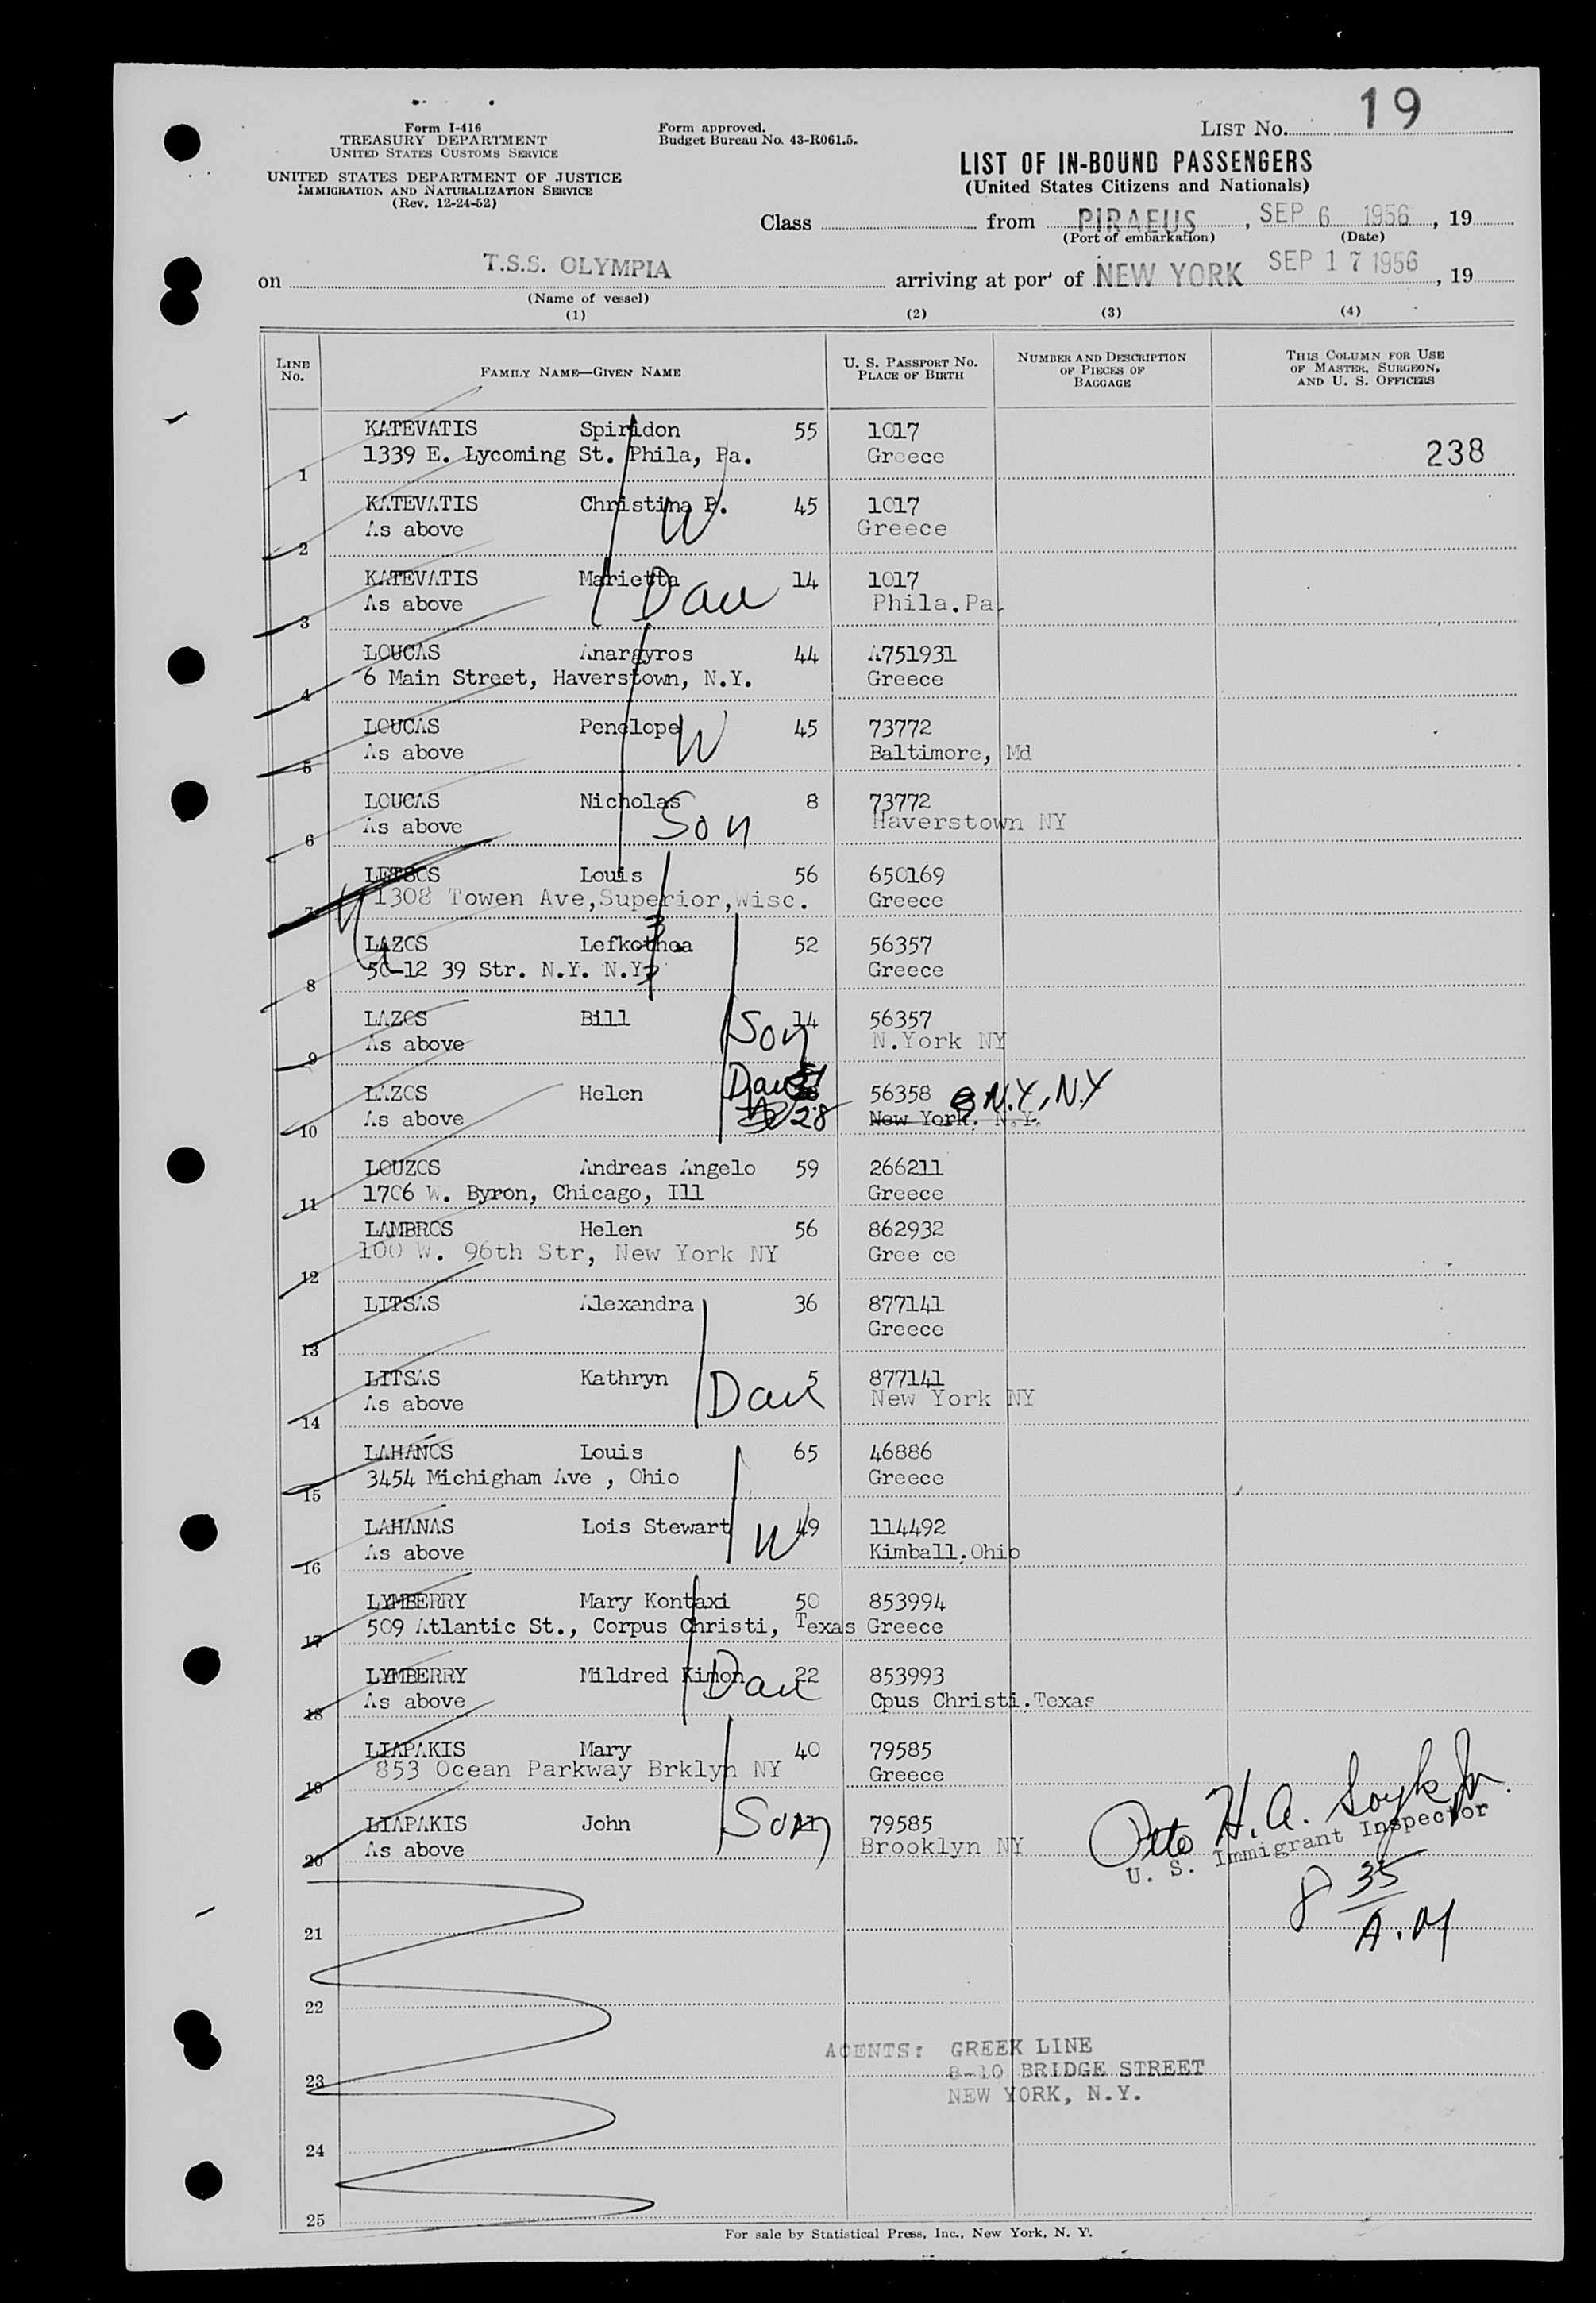 LIST No. 19
Form I-416
TREASURY DEPARTMENT
UNITED STATES CUSTOMS SERVICE
UNITED STATES DEPARTMENT OF JUSTICE
IMMIGRATION AND NATURALIZATION SERVICE
(Rev. 12-24-52)
Form approved.
Budget Bureau No. 43-R061.5.
LIST OF IN-BOUND PASSENGERS
(United States Citizens and Nationals)
Class from PIRAEUS, SEP 6 1956, 19
(Port of embarkation) (Date)
on T.S.S. OLYMPIA arriving at port of NEW YORK SEP 17 1956, 19
(Name of vessel)
(1) (2) (3) (4)
LINE No. FAMILY NAME—GIVEN NAME U. S. PASSPORT NO. PLACE OF BIRTH NUMBER AND DESCRIPTION OF PIECES OF BAGGAGE THIS COLUMN FOR USE OF MASTER, SURGEON, AND U. S. OFFICERS
KATEVATIS Spiridon 55 1017
1 1339 E. Lycoming St. Phila, Pa. Greece 238
KATEVATIS Christina P. 45 1017
2 As above W Greece
KATEVATIS Marietta 14 1017
3 As above Dau Phila.Pa.
LOUCAS Anargyros 44 A751931
4 6 Main Street, Haverstown, N.Y. Greece
LOUCAS Penelope W 45 73772
5 As above Baltimore, Md
LOUCAS Nicholas 8 73772
6 As above Son Haverstown NY
LETSOS Louis 56 650169
7 1308 Towen Ave,Superior,Wisc. Greece
LAZOS Lefkothea 52 56357
8 50-12 39 Str. N.Y. N.Y. Greece
LAZOS Bill Son 14 56357
9 As above N.York NY
LAZOS Helen Dau 56358 N.Y, N.Y
10 As above 28 New York, N.Y.
LOUZOS Andreas Angelo 59 266211
11 1706 W. Byron, Chicago, Ill Greece
LAMBROS Helen 56 862932
12 100 W. 96th Str, New York NY Gree ce
LITSAS Alexandra 36 877141
13 Greece
LITSAS Kathryn 5 877141
14 As above Dau New York NY
LAHANOS Louis 65 46886
15 3454 Michigham Ave , Ohio Greece
LAHANAS Lois Stewart 49 114492
16 As above W Kimball.Ohio
LYMBERRY Mary Kontaxi 50 853994
17 509 Atlantic St., Corpus Christi, Texas Greece
LYMBERRY Mildred Kimon 22 853993
18 As above Dau Cpus Christi.Texas
LIAPAKIS Mary 40 79585
19 853 Ocean Parkway Brklyn NY Greece
LIAPAKIS John Son 79585
20 As above Brooklyn NY
Otto H. A. Soyk Jr.
U. S. Immigrant Inspector
8 35
A.M
21
22
AGENTS: GREEK LINE
23 8-10 BRIDGE STREET
NEW YORK, N.Y.
24
25
For sale by Statistical Press, Inc., New York, N. Y.